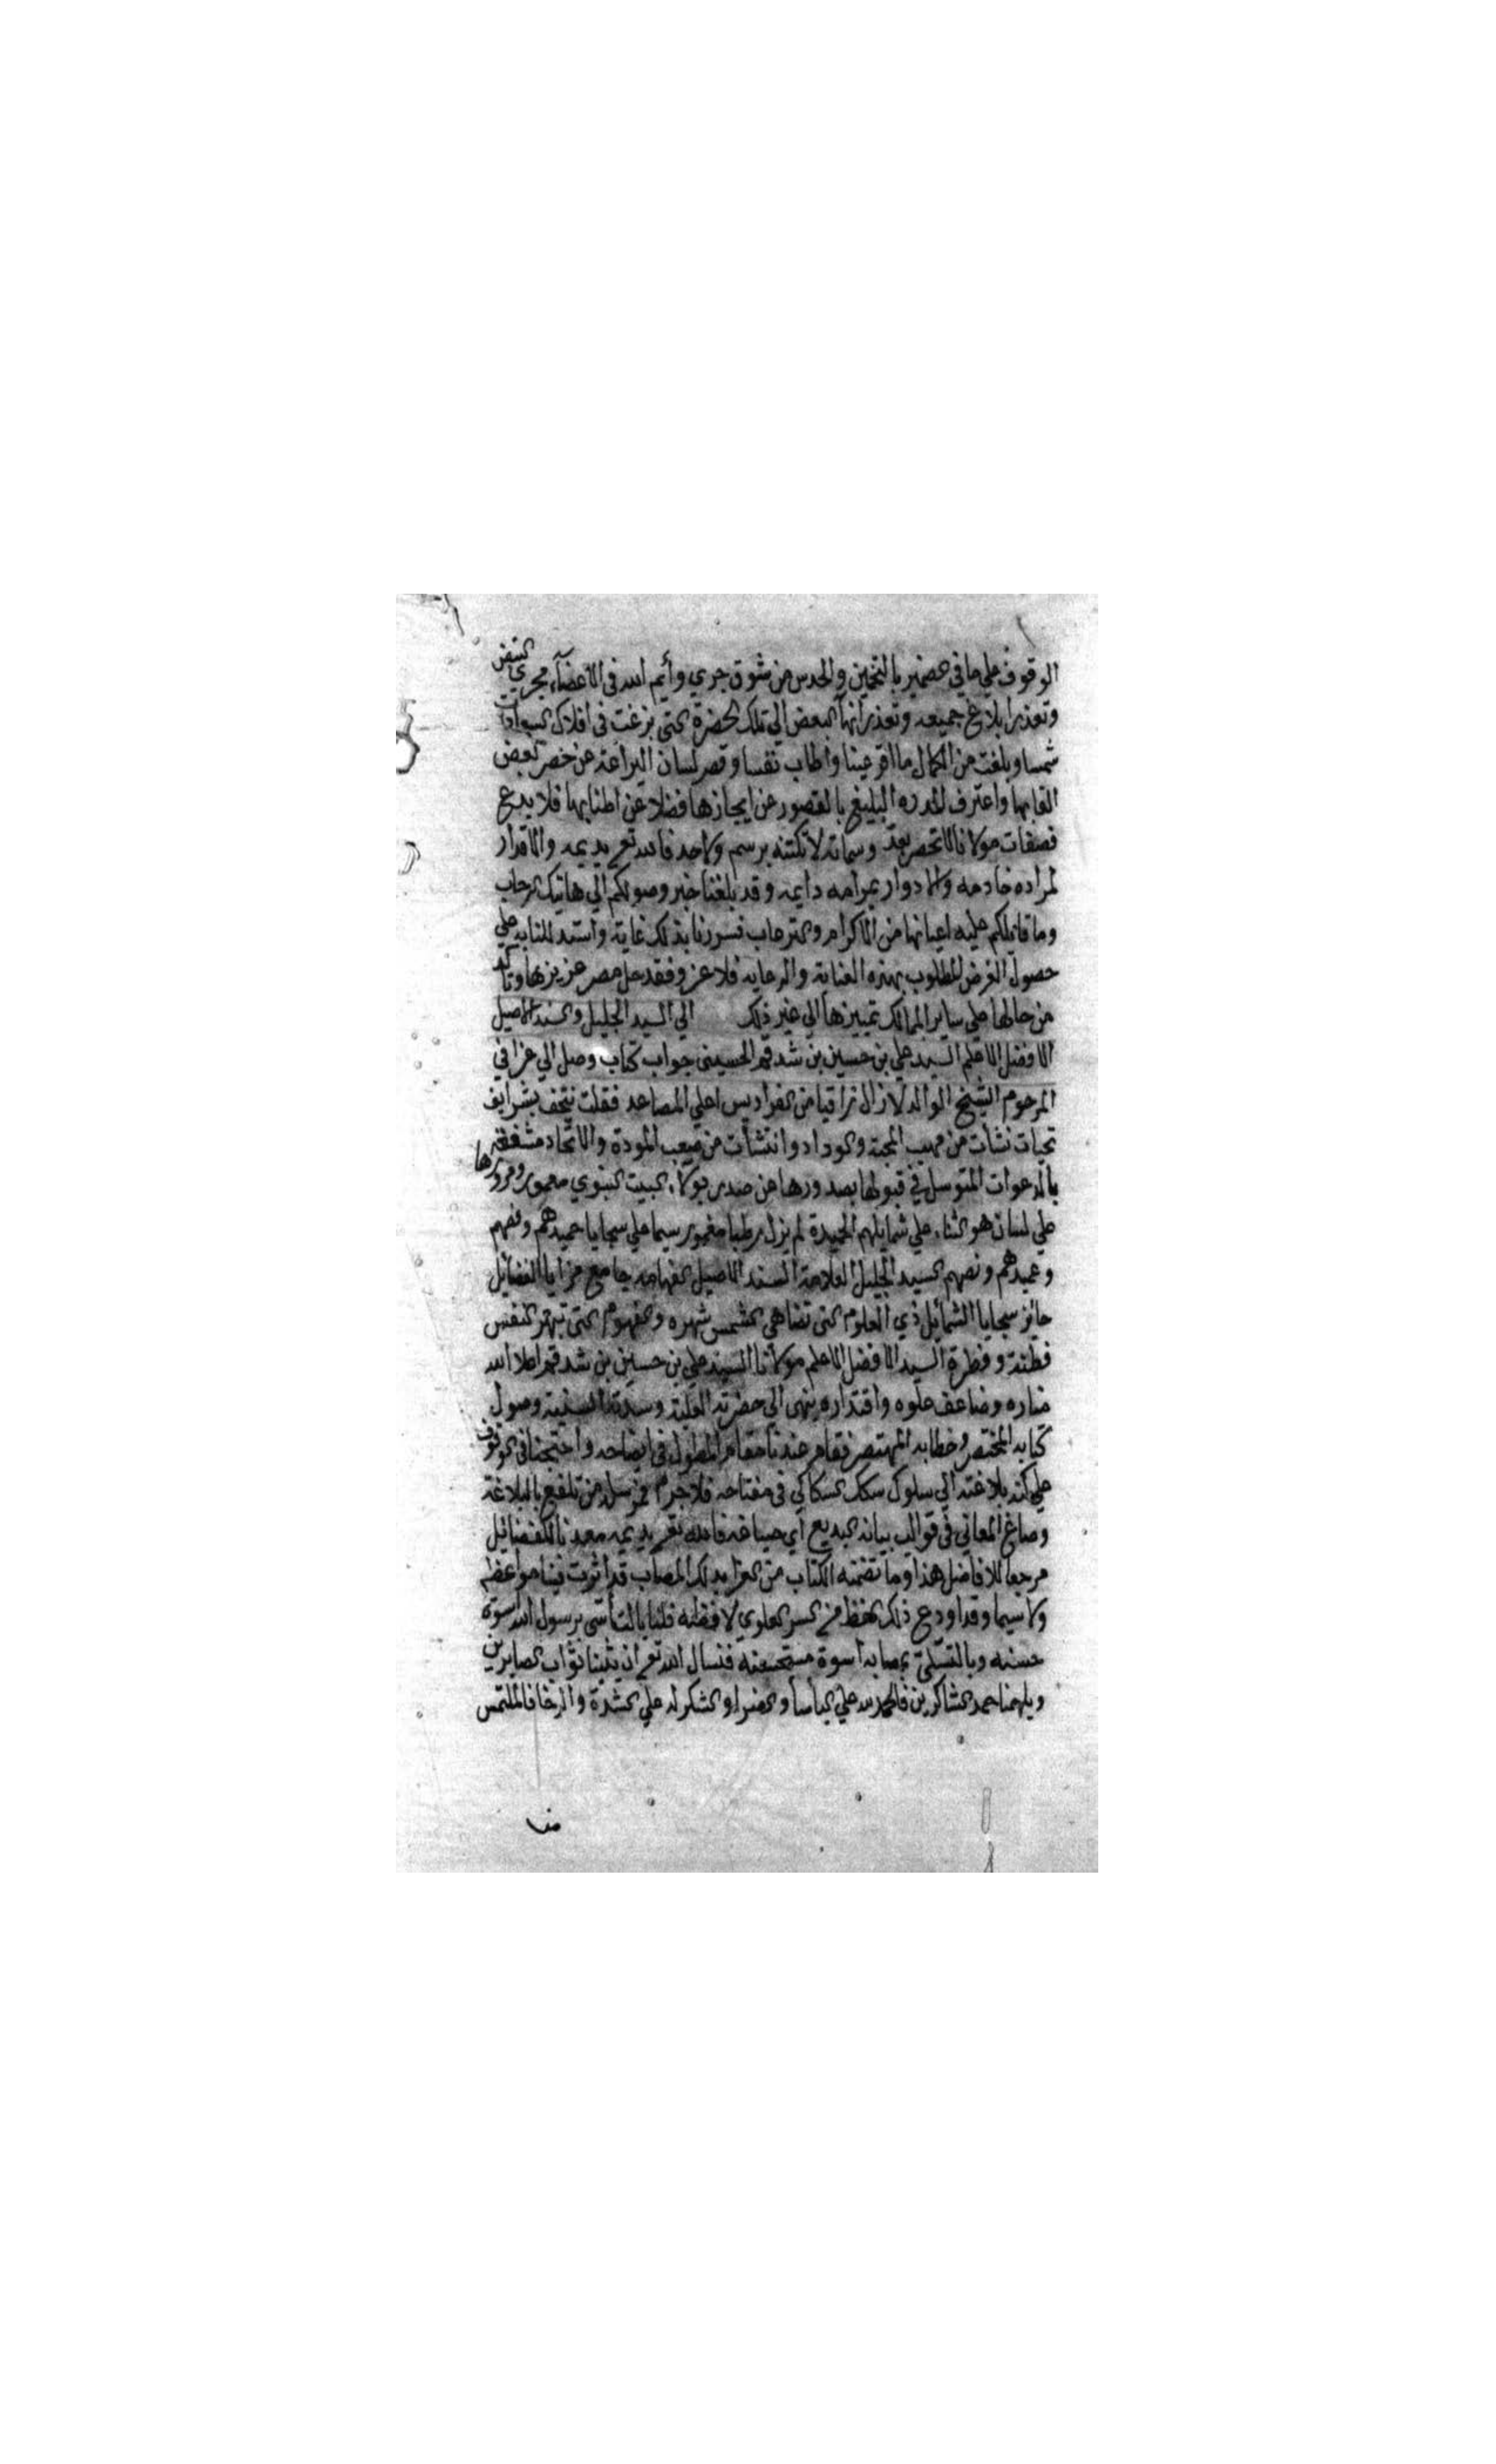 الوقوف على ما في الضمير بالتخمين والحدس من شوق جري وأيم الله في الاعضآء مجرى النفس
وتعذر ابلاغ جميعه وتعذر انهآ البعض الي تلك الحضرة التي بزغت في افلاك السيادات
شمسا وبلغت من الكمال ما اقر عينا واطاب نفسا وقصر لسان البراعة عن حصر بعض
القابها واعترف المدره البليغ بالقصور عن ايجازها فضلا عن اطنابها فلا بدع
فصفات مولانا لا تحصر بعد وسماته لا تكتنه برسم ولا حد فالله تع يديمه والاقدار
لمراده خادمه والادوار بمرامه دايمه وقد بلغنا خبر وصولكم الي هاتيك الرحاب
وما قابلكم عليه اعيانها من الاكرام والترحاب فسررنا بذلك غاية واستدللنا به علي
حصول الغرض المطلوب بهذه العناية والرعايه فلا غرو فقد حل مصر عزيزها وتاكد
من حالها علي ساير الممالك تمييزها الي غير ذلك الي السيد الجليل والسند الاصيل
الافضل الاعلم السيد علي بن حسين بن شدقم الحسيني جواب كتاب وصل الي عزا في
المرحوم الشيخ الوالد لا زال راقيا من الفراديس اعلي المصاعد فقلت نتحف بشرايف
تحيات نشأت من مهب المحبة والوداد وانتشأت من صيب المودة والاتحاد مشفعة
بالدعوات المتوسل في قبولها بصدورها عن صدر بولآء البيت النبوي معمور ومرورها
علي لسان هو بثناء علي شمايلهم الحميدة لم يزل رطبا مغمور سيما علي سجايا حميدهم وفهم
وعميدهم ونصهم السيد الجليل العلامة السند الاصيل الفهامه جامع مزايا الفضائل
حائز سجايا الشمائل ذي العلوم التي تضاهي الشمس شهره والفهوم التي تبهر النفس
فطنة وفطرة السيد الافضل الاعلم مولانا السيد علي بن حسين بن شدقم اعلا الله
مناره وضاعف علوه واقتداره ينهي الي حضرته العلية وسدته السنية وصول
كتابه المختصر وخطابه المهتصر فقام عندنا مقام المطول في ايضاحه واحتجنا في الوقوف
علي كنه بلاغته الي سلوك سكك السكاكي في مفتاحه فلا جرم من تلفع بالبلاغة
وصاغ المعاني في قوالب بيانه البديع أي صياغه فالله تع يديمه معدنا للفضائل
مرجعا للافاضل هذا وما تضمنه الكتاب من العزا بذلك المصاب قد اثرت فينا مواعظه
ولا سيما وقد اودع ذلك اللفظ من السر العلوي لافظه فلنا بالتأسي برسول الله اسوة
حسنه وبالتسلي بمصابه اسوة مستحسنه فنسال الله تع ان يثيبنا ثواب الصابرين
ويلهمنا حمد الشاكرين فالحمد لله علي البأسا والضرا والشكر له علي الشدة والرخا فالملتمس
منا